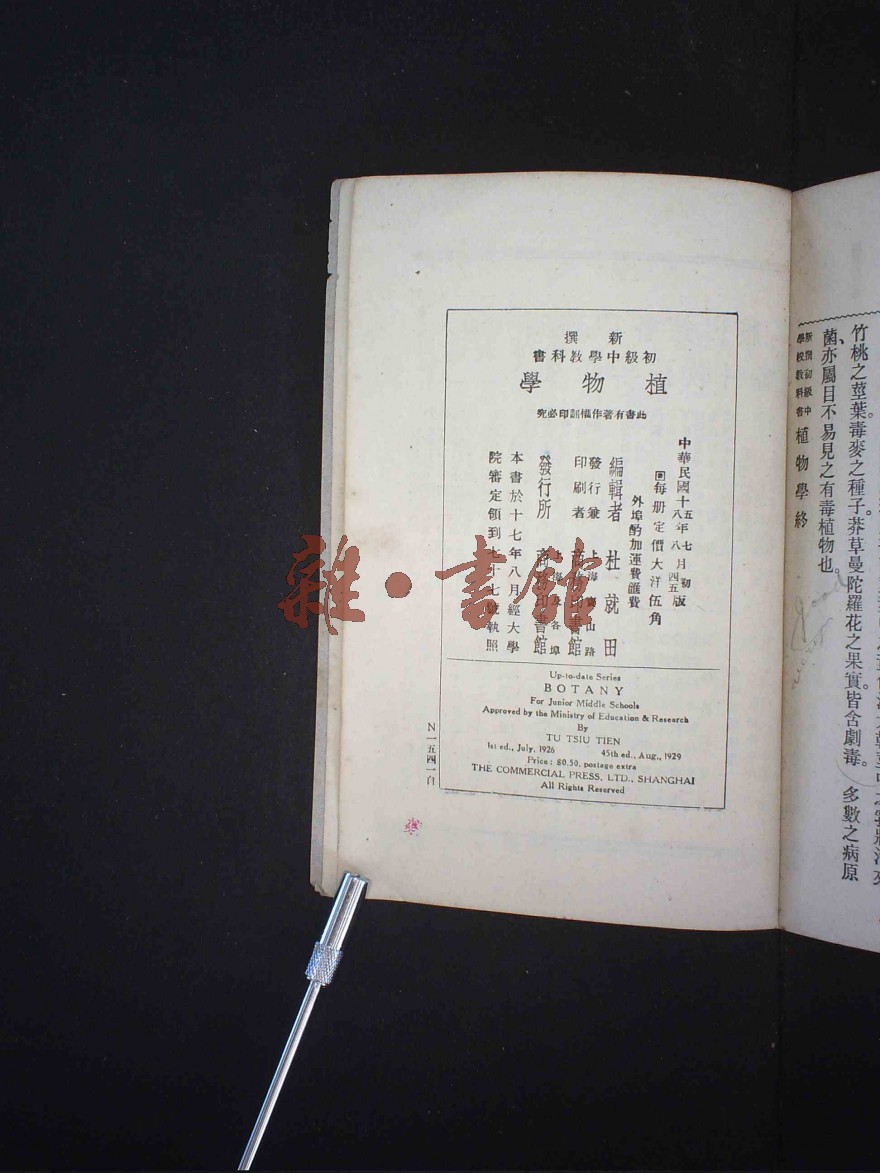 新撰
初級中學教科書
植物學
此書有著作權翻印必究
中華民國十五年七月初版
十八年八月四五版
回每册定價大洋伍角
外埠酌加運費匯費
編輯者 杜就田
發行兼印刷者 上海寶山路 商務印書館
發行所 上海及各埠 商務印書館
本書於十七年八月經大學
院審定領到七十七號執照
Up-to-date Series
BOTANY
For Junior Middle Schools
Approved by the Ministry of Education & Research
By
TU TSIU TIEN
1st ed., July, 1926 45th ed., Aug., 1929
Price: $0.50, postage extra
THE COMMERCIAL PRESS, LTD., SHANGHAI
All Rights Reserved
N一五四一自
竹桃之莖葉。毒麥之種子。莽草曼陀羅花之果實。皆含劇毒。多數之病原
菌、亦屬目不易見之有毒植物也。
新撰初級中學校教科書 植物學終
good
雜·書館